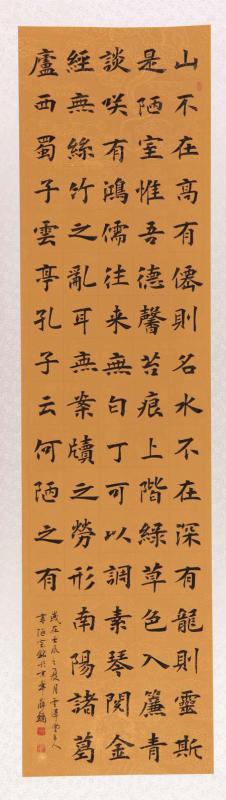 山不在高有僊則名水不在深有龍則靈斯
是陋室惟吾德馨苔痕上階綠草色入簾青
談咲有鴻儒往来無白丁可以調素琴閱金
經無絲竹之亂耳無案牘之勞形南陽諸葛
廬西蜀子雲亭孔子云何陋之有
歲在壬辰之夏月
書陋室銘於京華